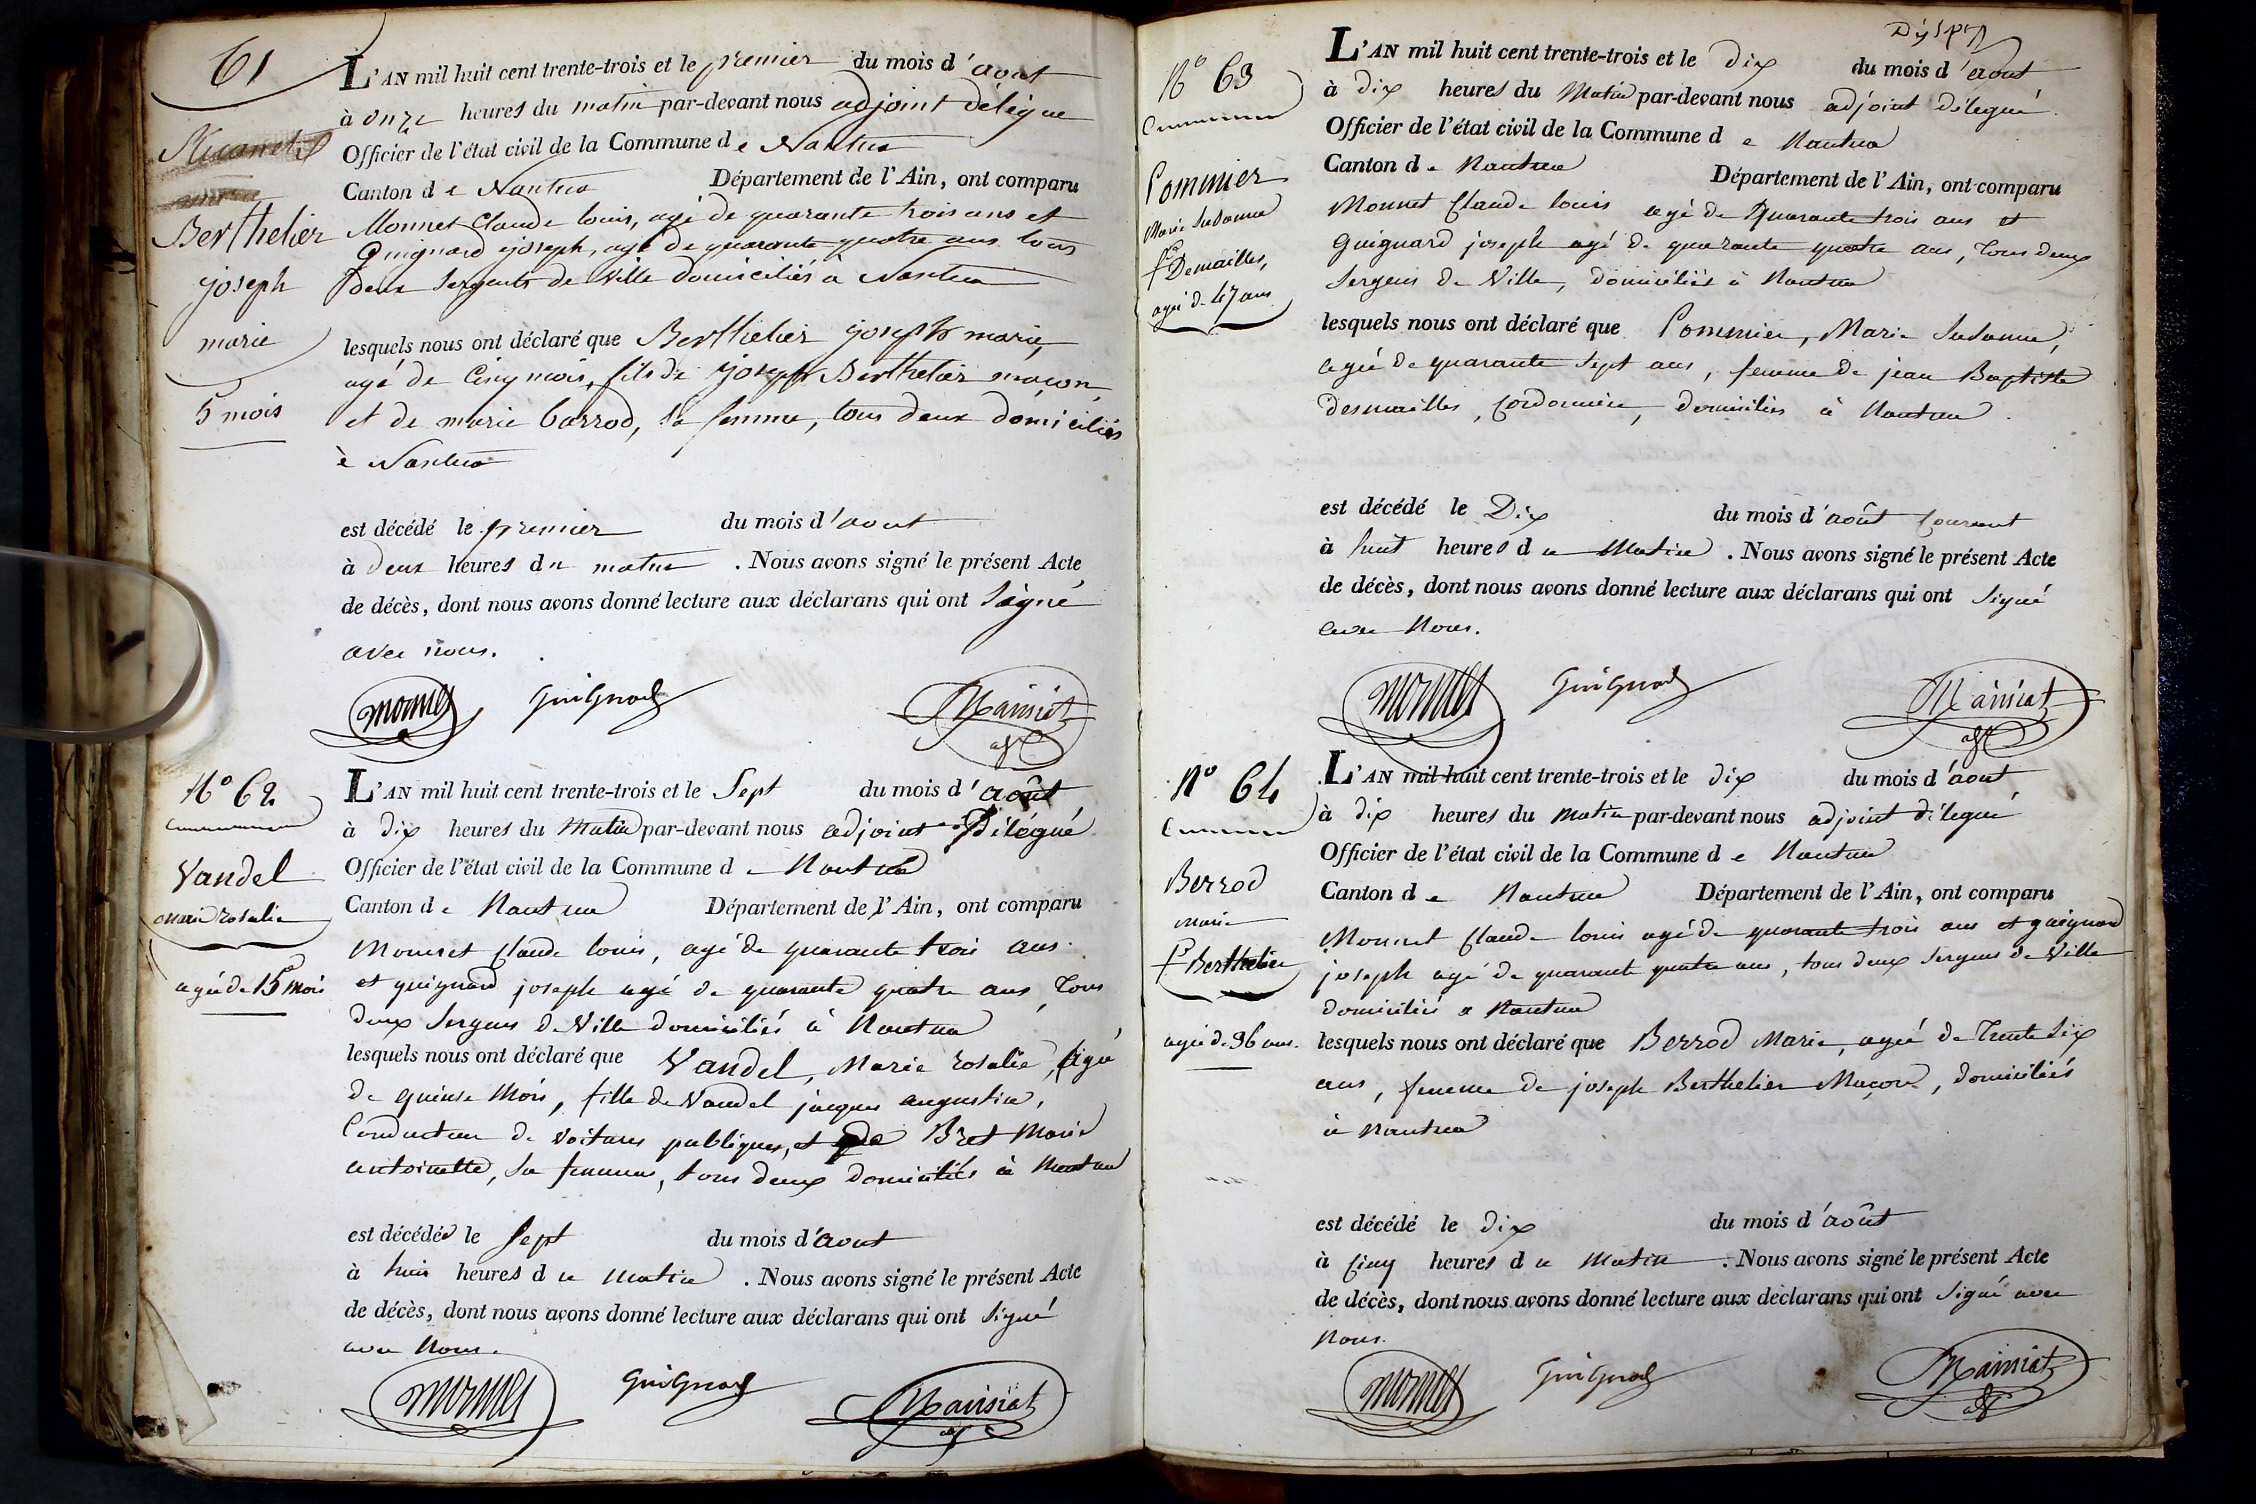 61
Berthelier
joseph
marie
5 mois
L'AN mil huit cent trente-trois et le premier du mois d'aout
à onze heures du matin par-devant nous adjoint délégue
Officier de l'état civil de la Commune de Nantua
Canton de Nantua Département de l'Ain, ont comparu
Monnet Claude louis, agé de quarante trois ans et
Guignard joseph, agé de quarante quatre ans tous
deux Sergents de Ville domiciliés à Nantua
lesquels nous ont déclaré que Berthelier joseph marie,
agé de Cinq mois, fils de joseph Berthelier maçon,
et de marie barrod, sa femme, tous deux domiciliés
à Nantua
est décédé le premier du mois d'aout
à deux heures du matin. Nous avons signé le présent Acte
de décès, dont nous avons donné lecture aux déclarans qui ont Signé
avec nous.
monnet Guignard Mainiat
adj
N° 62
Vandel
marie rosalie
agée de 15 mois
L'AN mil huit cent trente-trois et le Sept du mois d'août
à dix heures du Matin par-devant nous adjoint Délégué
Officier de l'état civil de la Commune de Nantua
Canton de Nantua Département de l'Ain, ont comparu
Monnet Claude louis, agé de quarante trois ans
et guignard joseph agé de quarante quatre ans, Tous
deux Sergens de Ville domiciliés à Nantua
lesquels nous ont déclaré que Vandel, Marie rosalie, Agée
de quinse Mois, fille de Vandel jacques augustin,
Conducteur de voitures publiques, et de Bret Marie
antoinette, sa femme, tous deux domiciliés à Nantua
est décédée le Sept du mois d'aout
à heures du matin. Nous avons signé le présent Acte
de décès, dont nous avons donné lecture aux déclarans qui ont Signé
avec Nous.
monnet Guignard Mainiat
adj
N° 63
Pommier
Marie Susanne
fe Demailles,
agée de 47 ans
L'AN mil huit cent trente-trois et le dix du mois d'août
à dix heures du Matin par-devant nous adjoint délegué
Officier de l'état civil de la Commune de Nantua
Canton de Nantua Département de l'Ain, ont comparu
Monnet Claude louis agé de quarante trois ans et
Guignard joseph agé de quarante quatre ans, Tous deux
Sergens de Ville, domiciliés à Nantua
lesquels nous ont déclaré que Pommier, Marie Susanne,
agée de quarante sept ans, femme de jean Baptiste
desmailles, Cordonnier, domiciliés à Nantua.
est décédé le Dix du mois d'août Courant
à huit heures du Matin. Nous avons signé le présent Acte
de décès, dont nous avons donné lecture aux déclarans qui ont Signé
avec Nous.
monnet Guignard Mainiat
adj
N° 64
Berrod
marie
fe Berthelier
agée de 36 ans.
L'AN mil huit cent trente-trois et le dix du mois d'août
à dix heures du matin par-devant nous adjoint délegué
Officier de l'état civil de la Commune de Nantua
Canton de Nantua Département de l'Ain, ont comparu
Monnet Claude louis agé de quarante trois ans et guignard
joseph agé de quarante quatre ans, tous deux Sergens de Ville
domiciliés a Nantua
lesquels nous ont déclaré que Berrod Marie, agée de Trente Six
ans, femme de joseph Berthelier Maçon, domiciliés
à Nantua
est décédé le dix du mois d'août
à Cinq heures du Matin. Nous avons signé le présent Acte
de décès, dont nous avons donné lecture aux déclarans qui ont Signé avec
Nous.
monnet Guignard Mainiat
adj